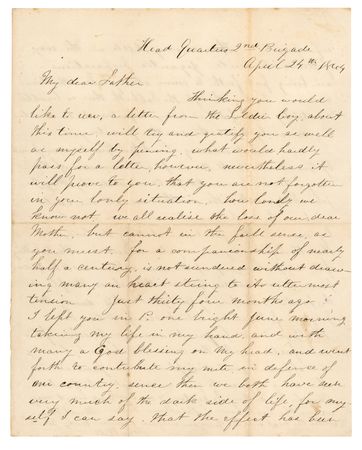 Head Quarters 2nd Brigade
April 24th 1864
My dear Father
Thinking you would
like to see, a letter from the Soldier Boy, about
this time, will try and gratify you as well
as myself by pening, what would hardly
pass for a letter, however, nevertheless it
will prove to you, that you are not forgotten
in your lonly situation, how lonly we
know not. we all realise the loss of our dear
Mother, but cannot in the full sense, as
you must. for a companionship of nearly
half a century, is not sundered without draw
ing many an heart string to its utermost
tension Just thirty four months ago
I left you in P. one bright June morning
taking my life in my hand, and with
many a God blessing on my head, and went
forth to contribute my mite in defence of
our country, since then we both have seen
very much of the dark side of life, for my
self I can say, that the effect has been